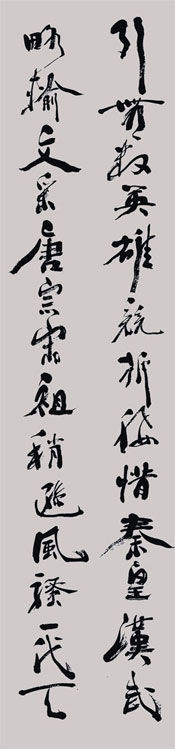 引無數英雄競折腰惜秦皇漢武
略輸文采唐宗宋祖稍遜風騷一代天